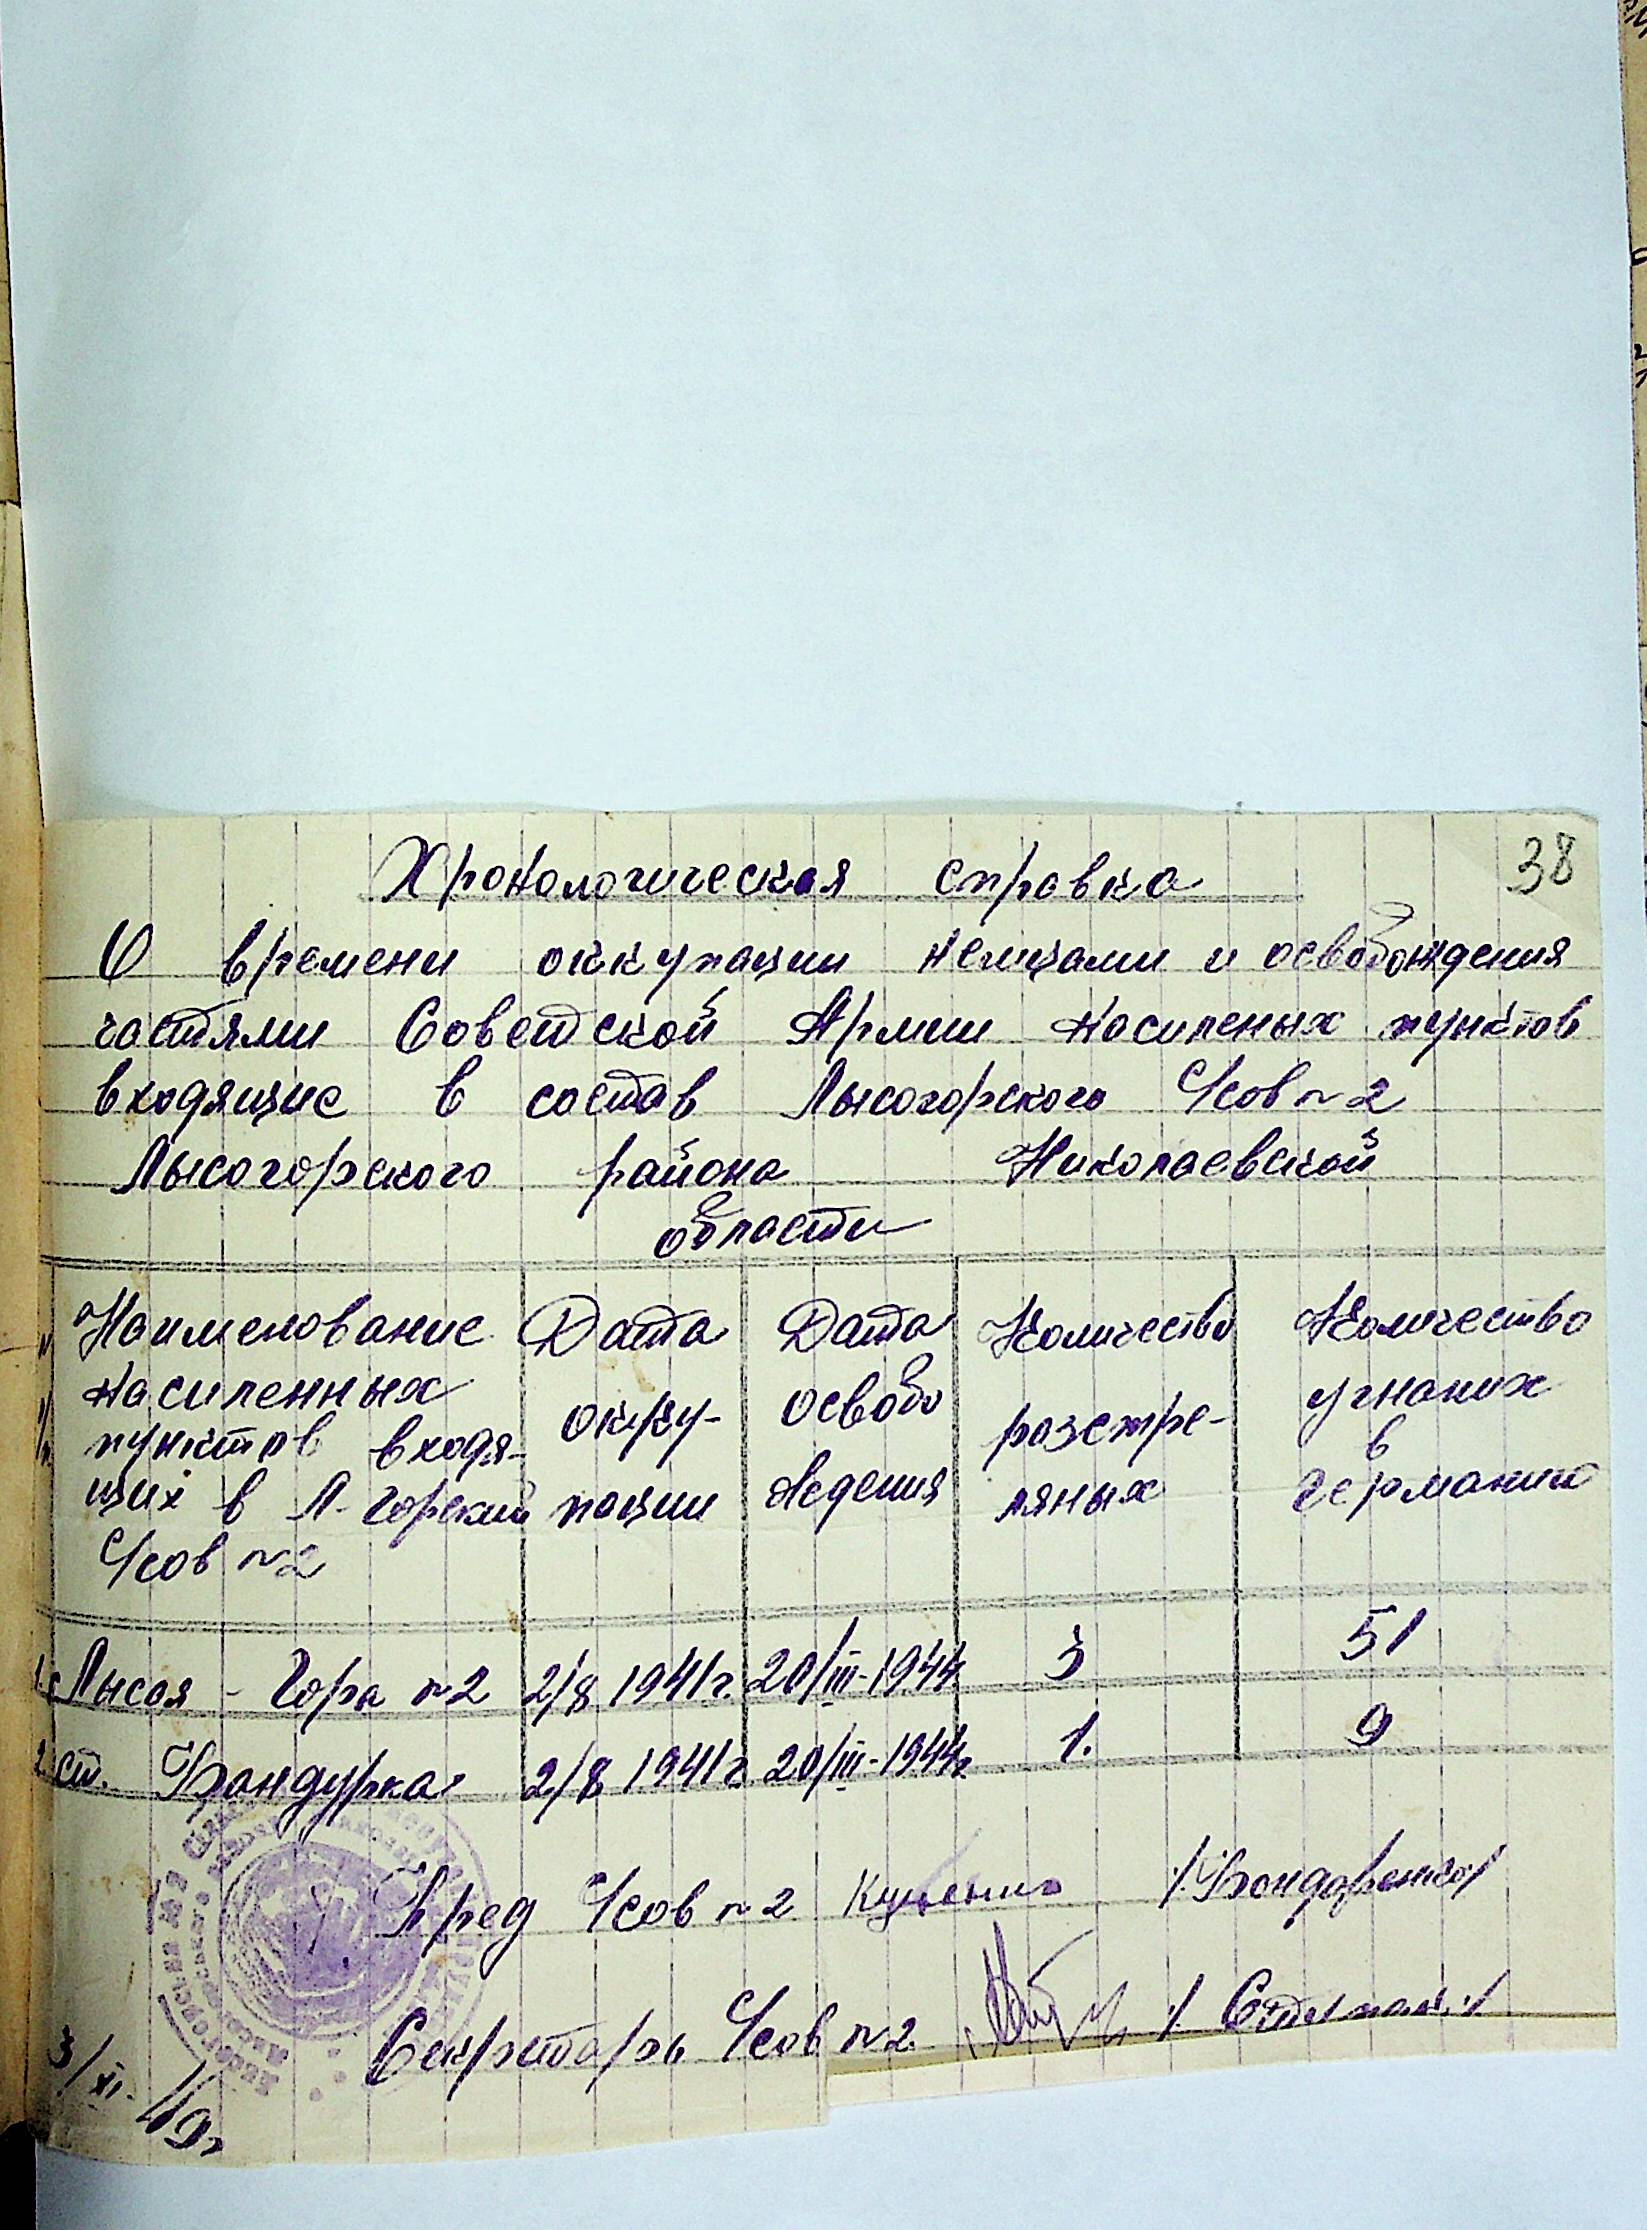 38
Хронологическая справка
О времени оккупации немцами и освобождения
частями Советской Армии насиленых пунктов
входящие в состав Лысогорского Ч/сов №2
Лысогорского района Николаевской
области
№ п/п
Наименование насиленных пунктов входя-щих в Л-Горский Ч/сов №2
Дата окку-пации
Дата освобо ждения
Количество разстре-ляных
Количество угнаних в германию
1. с Лысая - Гора №2 2/8 1941г. 20/III-1944г. 3 51
2. ст. Бандурка 2/8 1941г. 20/III-1944г. 1. 9
Пред Ч/сов №2 /Бондаренко/
Секретарь Ч/сов №2 /. Ступак ./
3/XI-49г